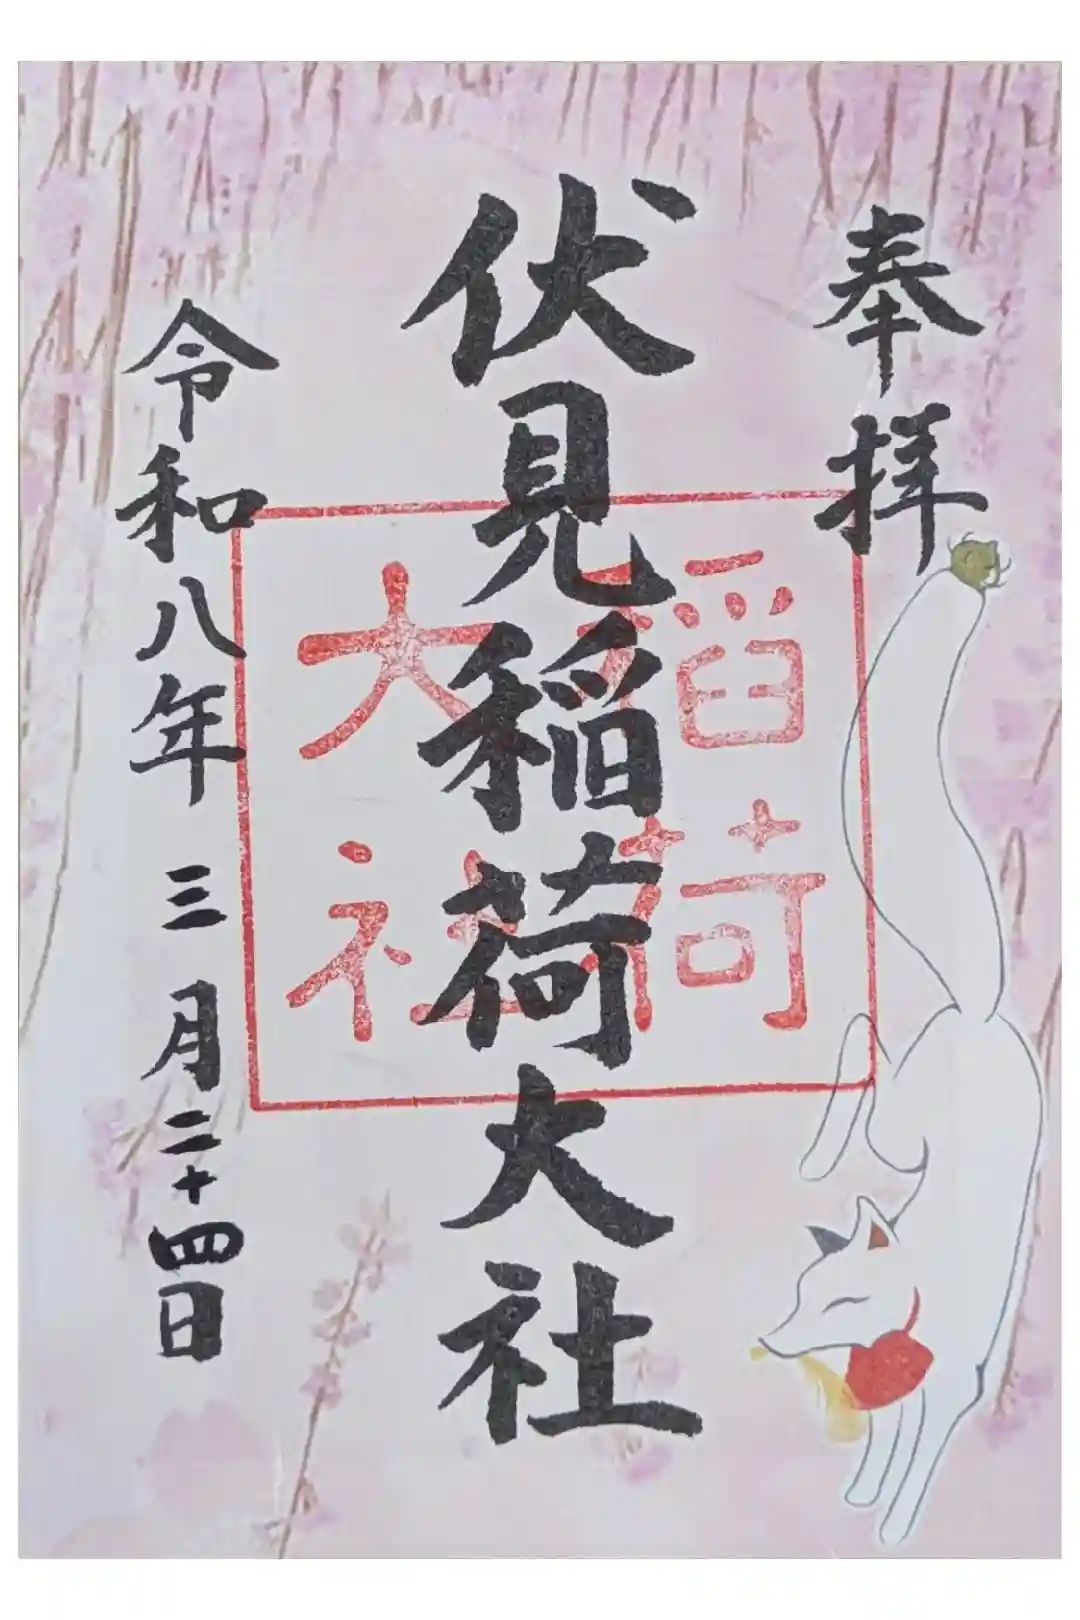 奉拝
伏見稲荷大社
稲荷
大社
令和八年三月二十四日